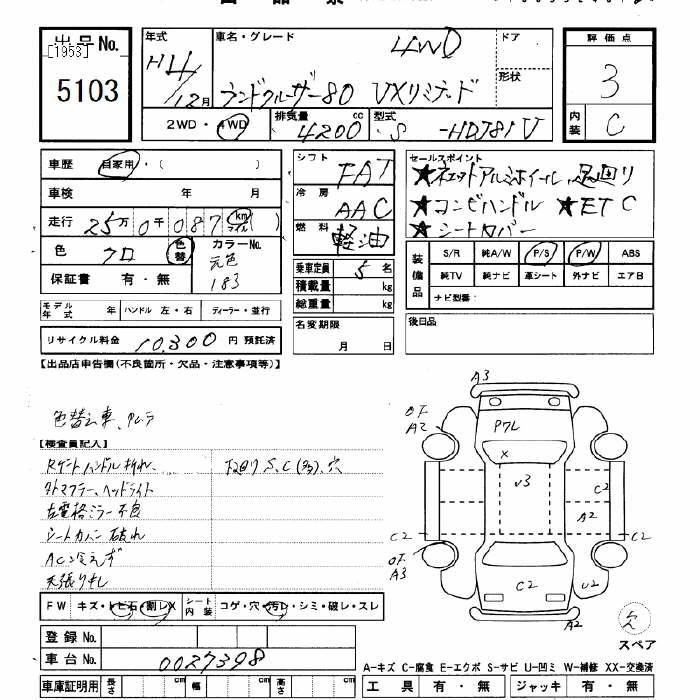 出品No.
[1953]
5103
年式 H4/12月
車名・グレード 4WD
ランドクルーザー80 VXリミテッド
ドア
形状
評価点
3
内装 C
2WD・4WD
排気量 4200 cc
型式 S -HDJ81V
車歴 自家用・( )
車検 年 月
走行 25万0千087 km マイル
色 クロ 色替 カラーNo. 元色 183
保証書 有・無
モデル年式 年 ハンドル 左・右 ディーラー・並行
リサイクル料金 10,300 円 預託済
シフト FAT
冷房 AAC
燃料 軽油
乗車定員 5 名
積載量 kg
総重量 kg
名変期限
月 日
セールスポイント
★ネエットアルミホイール、足回り
★コンビハンドル ★ETC
★シートカバー
装備品 S/R 純A/W P/S P/W ABS
純TV 純ナビ 革シート 外ナビ エアB
ナビ型番:
後日品
【出品店申告欄(不良箇所・欠品・注意事項等)】
色替え車、
【検査員記入】
下回りS、C(多)、穴
外マフラー、ヘッドライト
左電格ミラー不良
シートカバー破れ
AC冷えず
天張り
FW キズ・トビ石・割レX
シート内装 コゲ・穴・汚レ・シミ・破レ・スレ
登録No.
車台No. 0027398
車庫証明用 長さ cm 幅 cm 高さ cm
A3
A2
P7L
X
U3
C2
A2
C2
C2
A3
C2
U2
A2
欠
スペア
A-キズ C-腐食 E-エクボ S-サビ U-凹ミ W-補修 XX-交換済
工具 有・無 ジャッキ 有・無